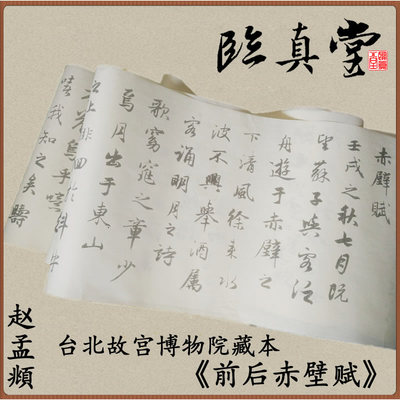 临真堂
赤壁賦
壬戌之秋七月既
望蘇子與客泛
舟遊于赤壁之
下清風徐来水
波不興舉酒属
客誦明月之詩
歌窈窕之章少
焉月出于東山
赵孟頫
台北故宫博物院藏本
《前后赤壁赋》